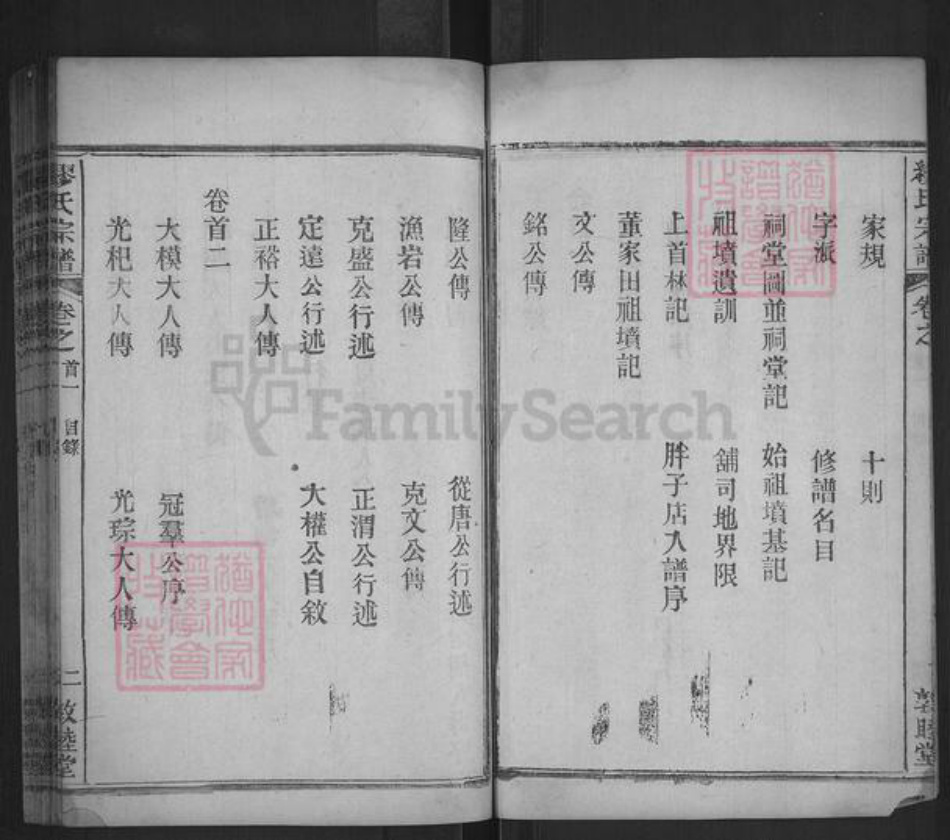 家規
十則
字派
修譜名目
祠堂圖並祠堂記
始祖墳基記
祖墳遺訓
舖司地界限
上首林記
胖子店入譜序
董家田祖墳記
文公傳
銘公傳
敦睦堂
隆公傳
從唐公行述
漁岩公傳
克文公傳
克盛公行述
正渭公行述
定遠公行述
大權公自敘
正裕大人傳
卷首二
大模大人傳
冠羣公序
光杞大人傳
光琮大人傳
繆氏宗譜
卷之
首一
目錄
二
敦睦堂
FamilySearch